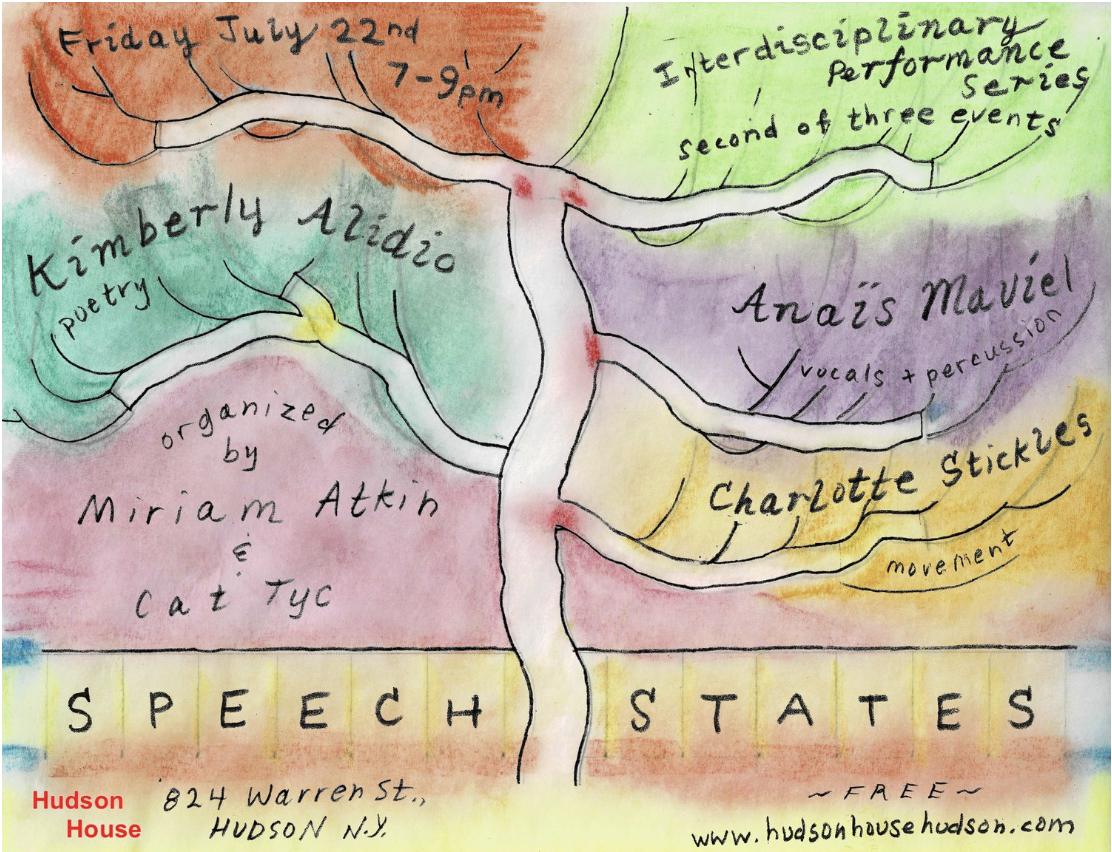 Friday July 22nd
7-9pm
Interdisciplinary
Performance
Series
second of three events
Kimberly Alidio
poetry
Anaïs Maviel
vocals + percussion
Charlotte Stickles
movement
organized
by
Miriam Atkin
&
Cat Tyc
SPEECH STATES
Hudson
House
824 Warren St.,
HUDSON N.Y.
~FREE~
www.hudsonhousehudson.com